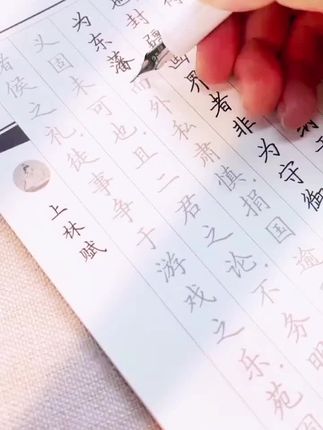 封疆画界者非为守御
为东藩而外私肃慎，捐国逾
义固未可也。且二君之论，不务明
侯之礼，徒事争于游戏之乐，苑
上林赋